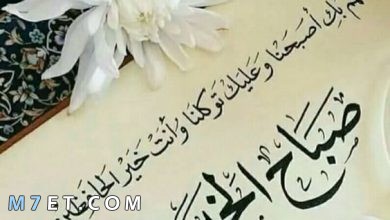 بك أصبحنا وعليك توكلنا وأنت خير الحافظين
صباح
M7ET.COM